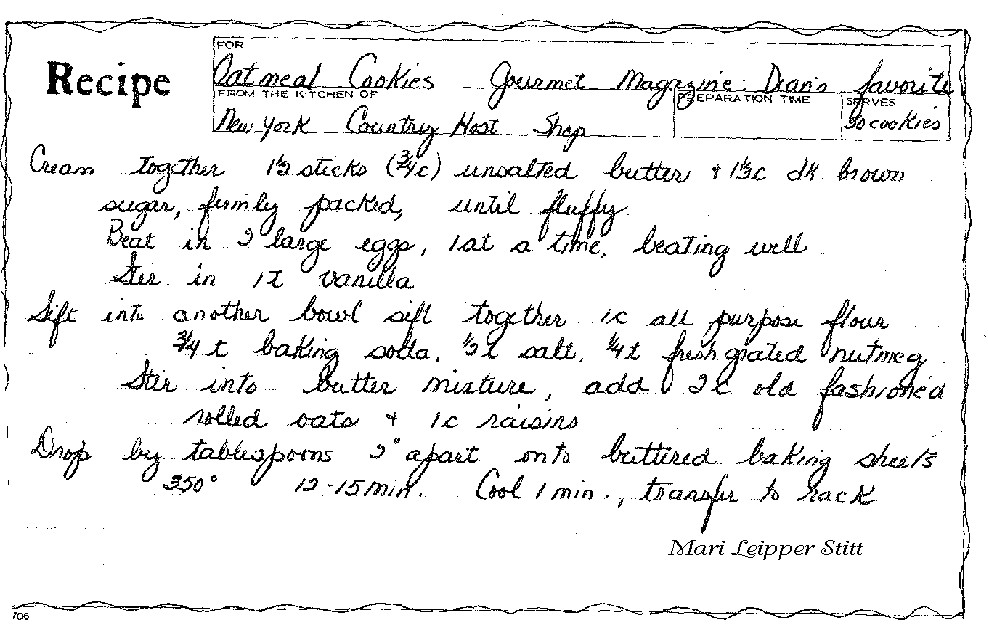 FOR
Recipe
Oatmeal Cookies Gourmet Magazine Dean's favorite
FROM THE KITCHEN OF
PREPARATION TIME
SERVES
New York Country Host Shop
30 cookies
Cream together 1½ sticks (¾c) unsalted butter + 1½c dk brown
sugar, firmly packed, until fluffy
Beat in 2 large eggs, 1 at a time, beating well
Stir in 1t vanilla
Sift into another bowl sift together 1c all purpose flour
¾ t baking soda, ½t salt, ¼t fresh grated nutmeg
Stir into butter mixture, add 2c old fashioned
rolled oats + 1c raisins
Drop by tablespoons 2" apart onto buttered baking sheets
350° 12-15 min. Cool 1 min., transfer to rack
Mari Leipper Stitt
706